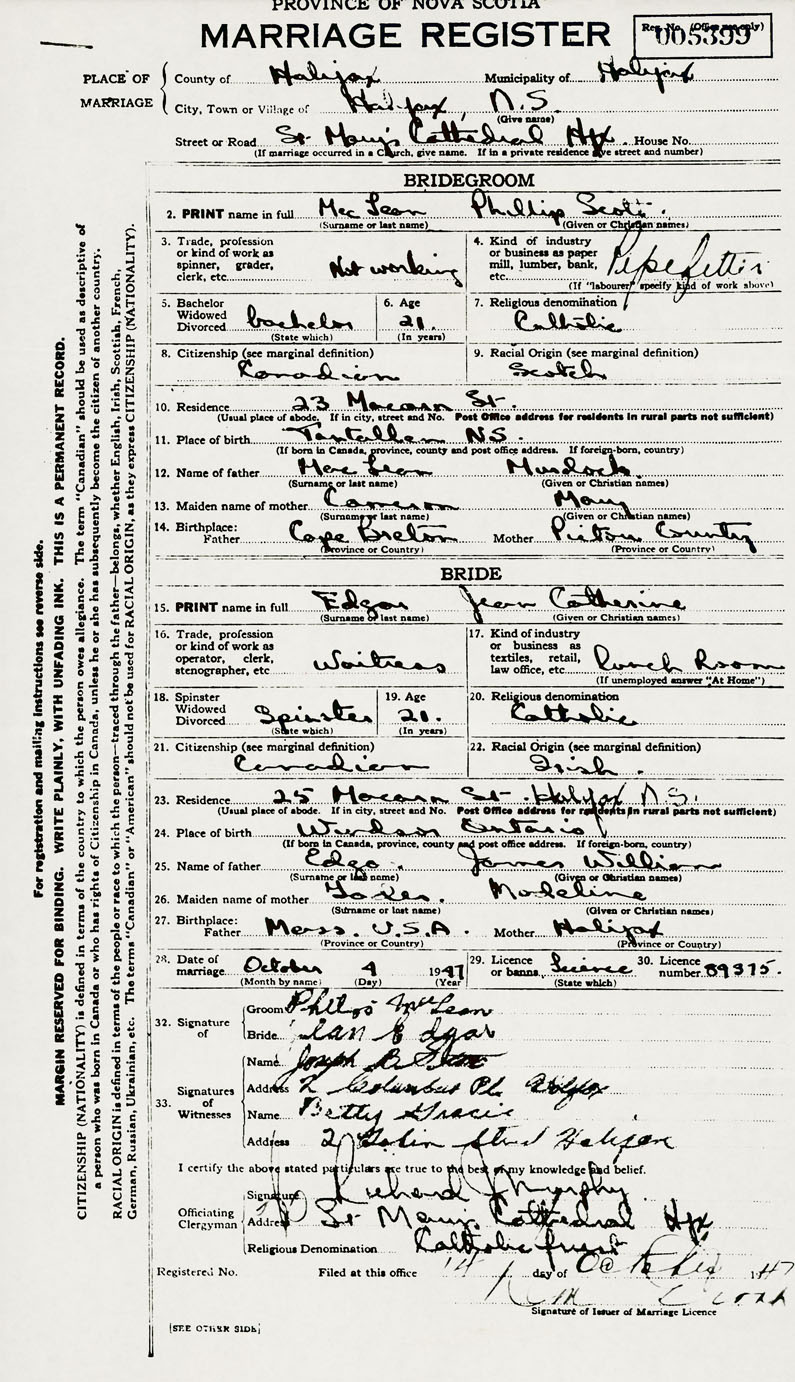 PROVINCE OF NOVA SCOTIA
MARRIAGE REGISTER
Reg. No. (Office use only)
005399
PLACE OF MARRIAGE
County of Halifax Municipality of Halifax
City, Town or Village of Halifax, N.S.
(Give name)
Street or Road St Mary's Cathedral Hfx. House No.
(If marriage occurred in a Church, give name. If in a private residence give street and number)
BRIDEGROOM
2. PRINT name in full MacLean Phillip Scott
(Surname or last name) (Given or Christian names)
3. Trade, profession or kind of work as spinner, grader, clerk, etc. Not working
4. Kind of industry or business as paper mill, lumber, bank, etc. Pipefitter
(If "labourer" specify kind of work above)
5. Bachelor Widowed Divorced bachelor
(State which)
6. Age 21.
(In years)
7. Religious denomination
Catholic
8. Citizenship (see marginal definition)
Canadian
9. Racial Origin (see marginal definition)
Scotch
10. Residence 23 Macara St.
(Usual place of abode. If in city, street and No. Post Office address for residents in rural parts not sufficient)
11. Place of birth Tantallon NS.
(If born in Canada, province, county and post office address. If foreign-born, country)
12. Name of father MacLean Murdock
(Surname or last name) (Given or Christian names)
13. Maiden name of mother Cameron Mary
(Surname or last name) (Given or Christian names)
14. Birthplace: Father Cape Breton Mother Pictou County
(Province or Country) (Province or Country)
BRIDE
15. PRINT name in full Edgar Jean Catherine
(Surname or last name) (Given or Christian names)
16. Trade, profession or kind of work as operator, clerk, stenographer, etc. Waitress
17. Kind of industry or business as textiles, retail, law office, etc. Lunch Room
(If unemployed answer "At Home")
18. Spinster Widowed Divorced Spinster
(State which)
19. Age 21.
(In years)
20. Religious denomination
Catholic
21. Citizenship (see marginal definition)
Canadian
22. Racial Origin (see marginal definition)
Irish.
23. Residence 25 Macara St. Halifax N.S.
(Usual place of abode. If in city, street and No. Post Office address for residents in rural parts not sufficient)
24. Place of birth Windsor Ontario
(If born in Canada, province, county and post office address. If foreign-born, country)
25. Name of father Edgar James William
(Surname or last name) (Given or Christian names)
26. Maiden name of mother Madeline
(Surname or last name) (Given or Christian names)
27. Birthplace: Father Mass. U.S.A. Mother Halifax
(Province or Country) (Province or Country)
28. Date of marriage October 4 1947
(Month by name) (Day) (Year)
29. Licence or banns
(State which)
30. Licence number 89375.
32. Signature of
Groom McLean
Bride Jean Edgar
33. Signatures of Witnesses
Name Joseph B
Address 2 Columbus Pl. Halifax
Name Betty Gracie
Address 2 Tobin Street Halifax
I certify the above stated particulars are true to the best of my knowledge and belief.
Officiating Clergyman
Signature Richard J Murphy
Address St Mary's Cathedral Hfx
Religious Denomination Catholic Priest
Registered No. Filed at this office 14 day of October 1947
Signature of Issuer of Marriage Licence
[SEE OTHER SIDE]
For registration and mailing instructions see reverse side.
MARGIN RESERVED FOR BINDING. WRITE PLAINLY, WITH UNFADING INK. THIS IS A PERMANENT RECORD.
CITIZENSHIP (NATIONALITY) is defined in terms of the country to which the person owes allegiance. The term "Canadian" should be used as descriptive of
a person who was born in Canada or who has rights of Citizenship in Canada, unless he or she has subsequently become the citizen of another country.
RACIAL ORIGIN is defined in terms of the people or race to which the person—traced through the father—belongs, whether English, Irish, Scottish, French,
German, Russian, Ukrainian, etc. The terms "Canadian" or "American" should not be used for RACIAL ORIGIN, as they express CITIZENSHIP (NATIONALITY).